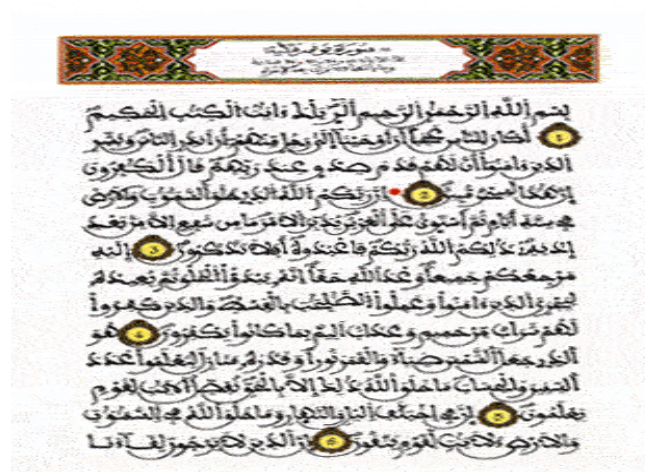 سورة يونس مكية
بسم الله الرحمن الرحيم الر تلك ءايت الكتب الحكيم
1 أكان للناس عجبا أن أوحينا إلى رجل منهم أن أنذر الناس وبشر
الذين ءامنوا أن لهم قدم صدق عند ربهم قال الكفرون
إن هذا لسحر مبين 2 إن ربكم الله الذي خلق السموت والارض
في ستة أيام ثم استوى على العرش يدبر الامر ما من شفيع الا من بعد
إذنه ذلكم الله ربكم فاعبدوه أفلا تذكرون 3 إليه
مرجعكم جميعا وعد الله حقا إنه يبدؤا الخلق ثم يعيده
ليجزي الذين ءامنوا وعملوا الصلحت بالقسط والذين كفروا
لهم شراب من حميم وعذاب اليم بما كانوا يكفرون 4 هو
الذي جعل الشمس ضياء والقمر نورا وقدره منازل لتعلموا عدد
السنين والحساب ما خلق الله ذلك إلا بالحق نفصل الايت لقوم
يعلمون 5 إن في اختلف اليل والنهار وما خلق الله في السموت
والارض لأيت لقوم يتقون 6 إن الذين لا يرجون لقاءنا